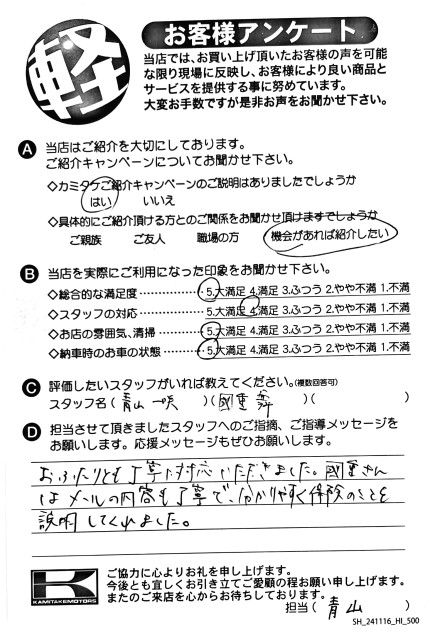 軽
お客様アンケート
当店では、お買い上げ頂いたお客様の声を可能
な限り現場に反映し、お客様により良い商品と
サービスを提供する事に努めています。
大変お手数ですが是非お声をお聞かせ下さい。
A 当店はご紹介を大切にしております。
ご紹介キャンペーンについてお聞かせ下さい。
◇カミタケご紹介キャンペーンのご説明はありましたでしょうか
はい いいえ
◇具体的にご紹介頂ける方とのご関係をお聞かせ頂けますでしょうか
ご親族 ご友人 職場の方 機会があれば紹介したい
B 当店を実際にご利用になった印象をお聞かせ下さい。
◇総合的な満足度 5.大満足 4.満足 3.ふつう 2.やや不満 1.不満
◇スタッフの対応 5.大満足 4.満足 3.ふつう 2.やや不満 1.不満
◇お店の雰囲気、清掃 5.大満足 4.満足 3.ふつう 2.やや不満 1.不満
◇納車時のお車の状態 5.大満足 4.満足 3.ふつう 2.やや不満 1.不満
C 評価したいスタッフがいれば教えてください。(複数回答可)
スタッフ名 ( 青山 )( 國重 )( )
D 担当させて頂きましたスタッフへのご指摘、ご指導メッセージを
お願いします。応援メッセージもぜひお願いします。
おふたりとも丁寧に対応いただきました。國重さん
はメールの内容も丁寧で、分かりやすく保険のことを
説明してくれました。
K
KAMITAKEMOTORS
ご協力に心よりお礼を申し上げます。
今後とも宜しくお引き立てご愛顧の程お願い申し上げます。
またのご来店を心からお待ちしております。
担当 ( 青山 )
SH_241116_HI_500